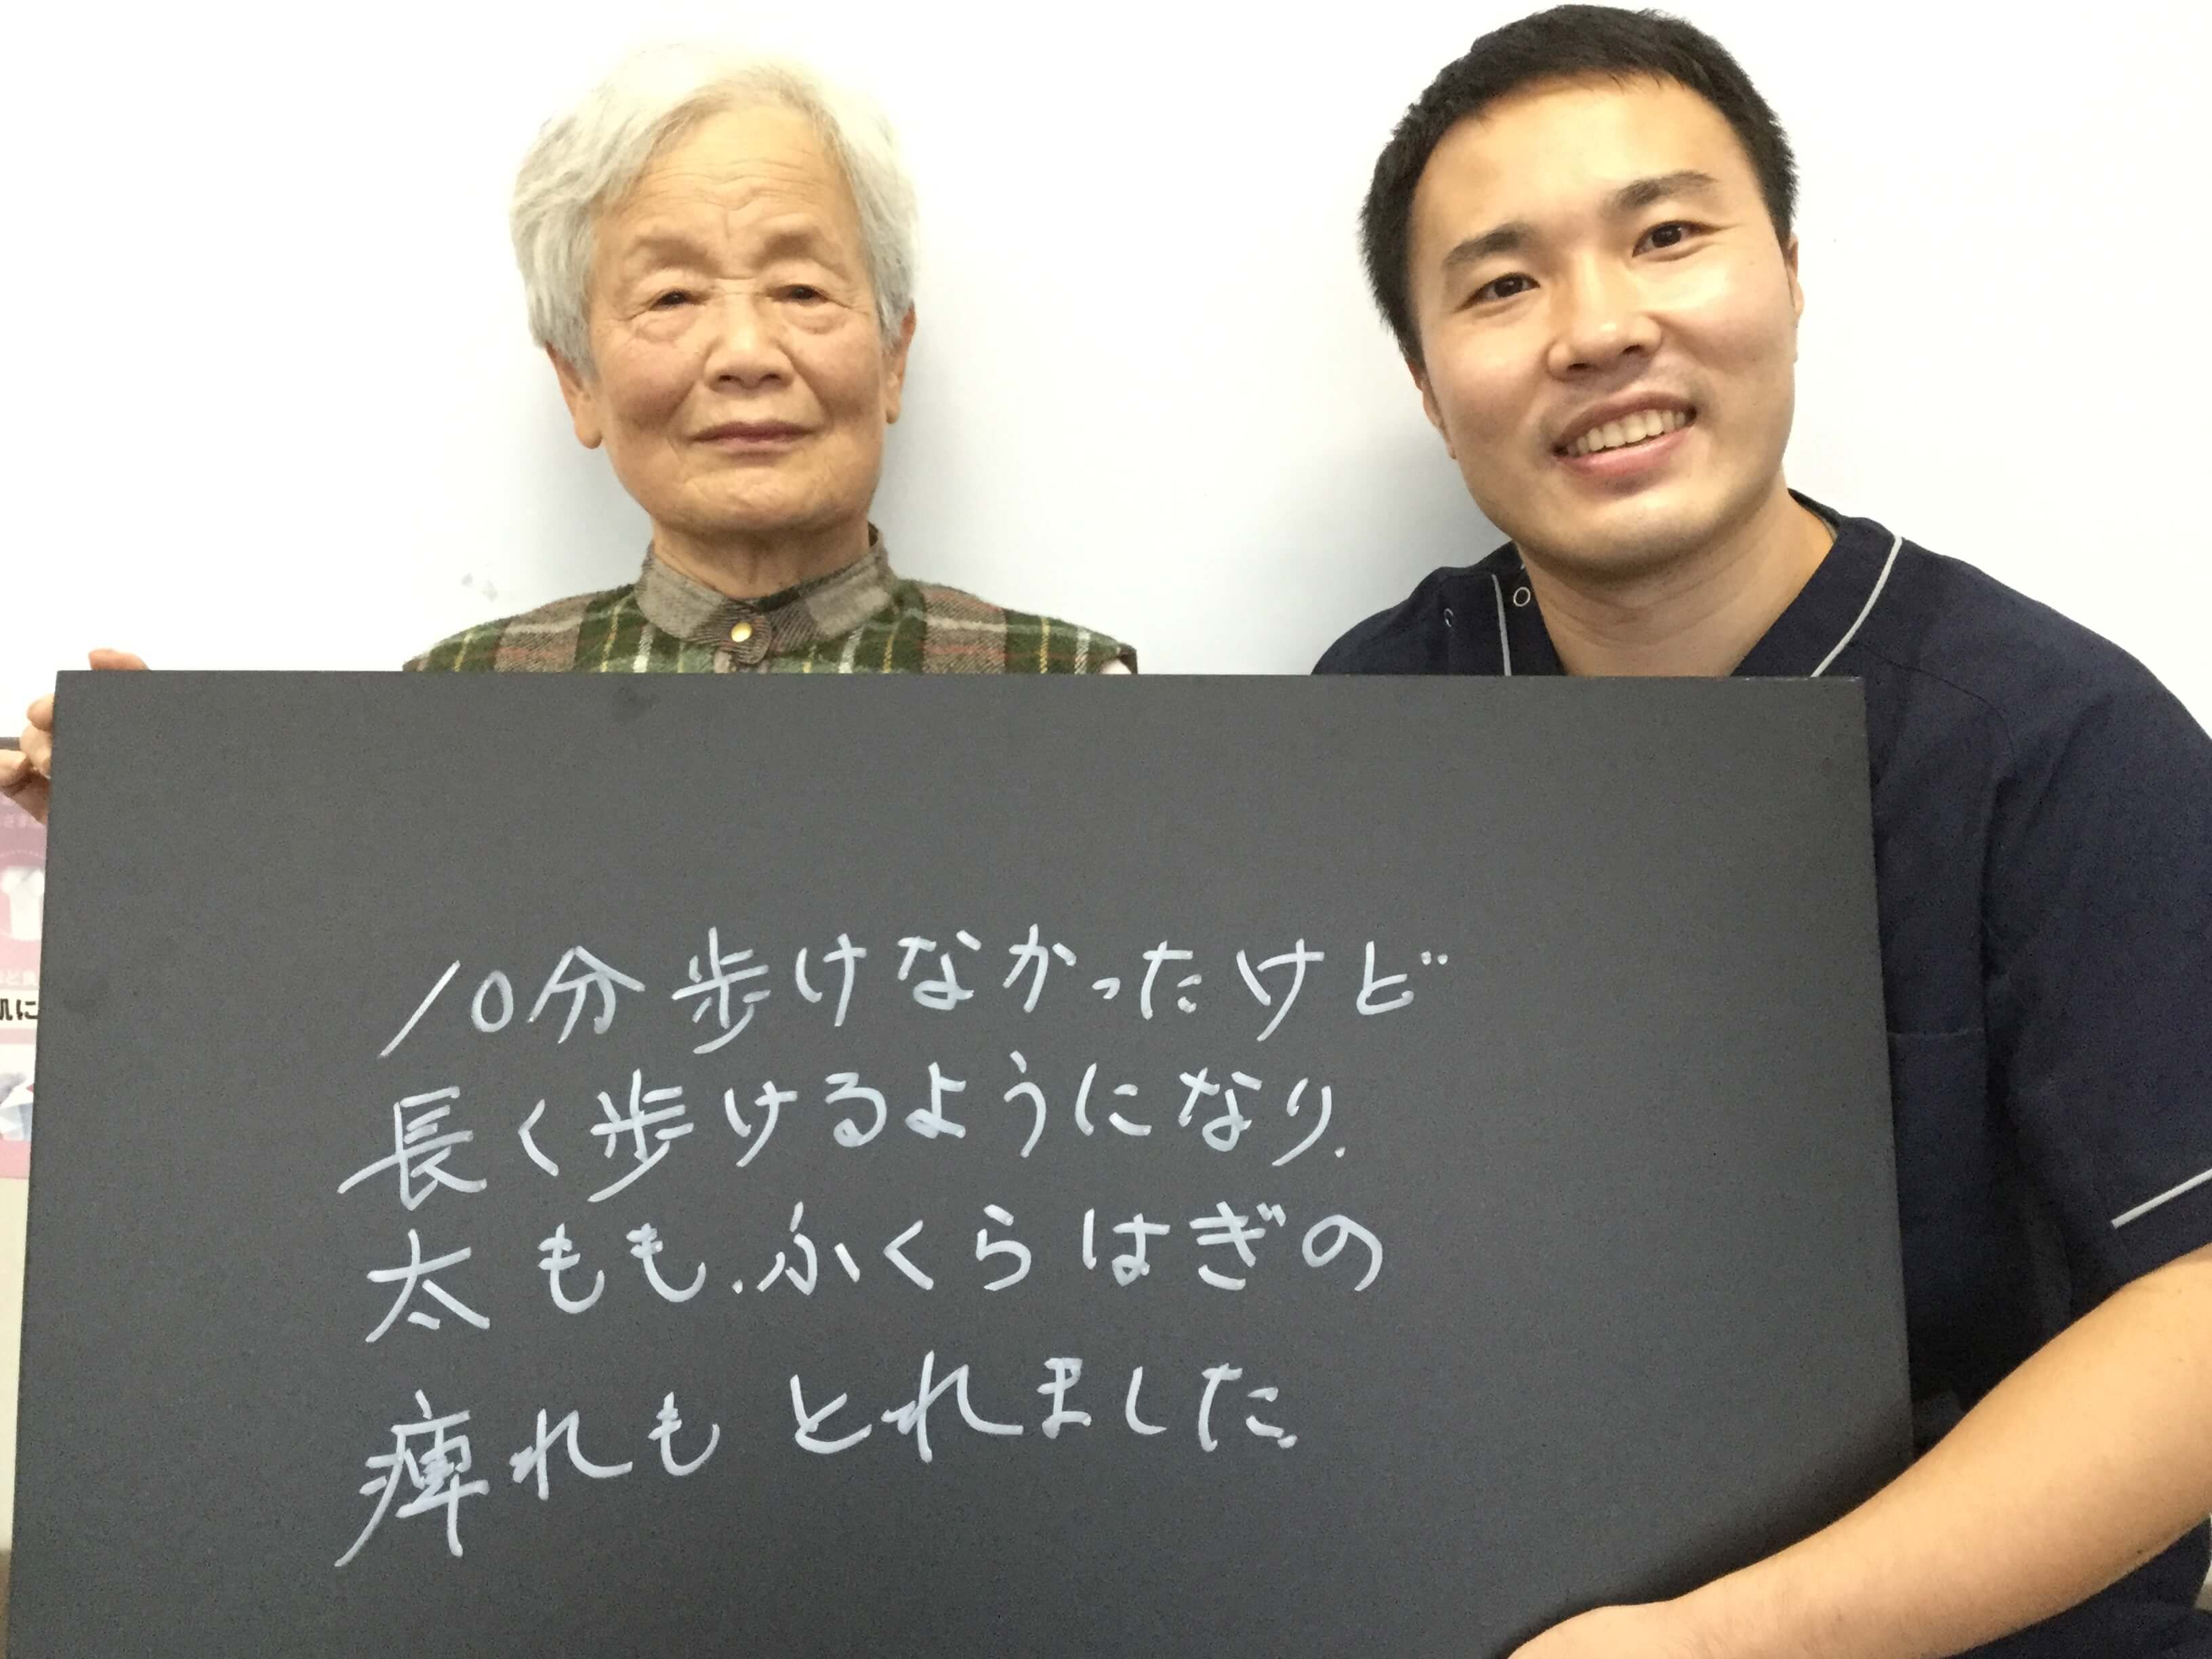 10分歩けなかったけど
長く歩けるようになり.
太もも.ふくらはぎの
痺れもとれました.
肌に